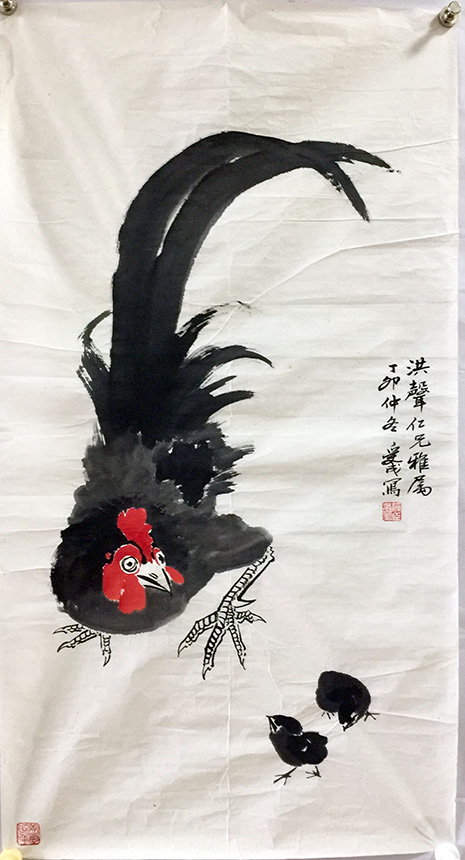 洪聲仁兄雅属
丁卯仲冬 写